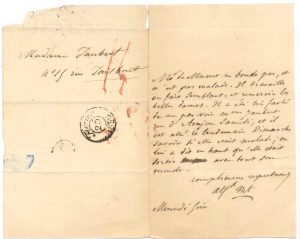 Madame Jaubert
n° 15 rue Taitbout
Mr de Musset ne boude pas, et
n'est pas malade. Il travaille
ou fait semblant, et renverse les
belles dames. Il a été fâché
de ne pas voir mme Jaubert
rue d' Samedi, et il
est allé le lendemain Dimanche
savoir si elle était malade, on
lui a dit en haut qu'elle était
sortie avec tout son
monde.
compliments respectueux
Alfd Mt
Mercredi soir